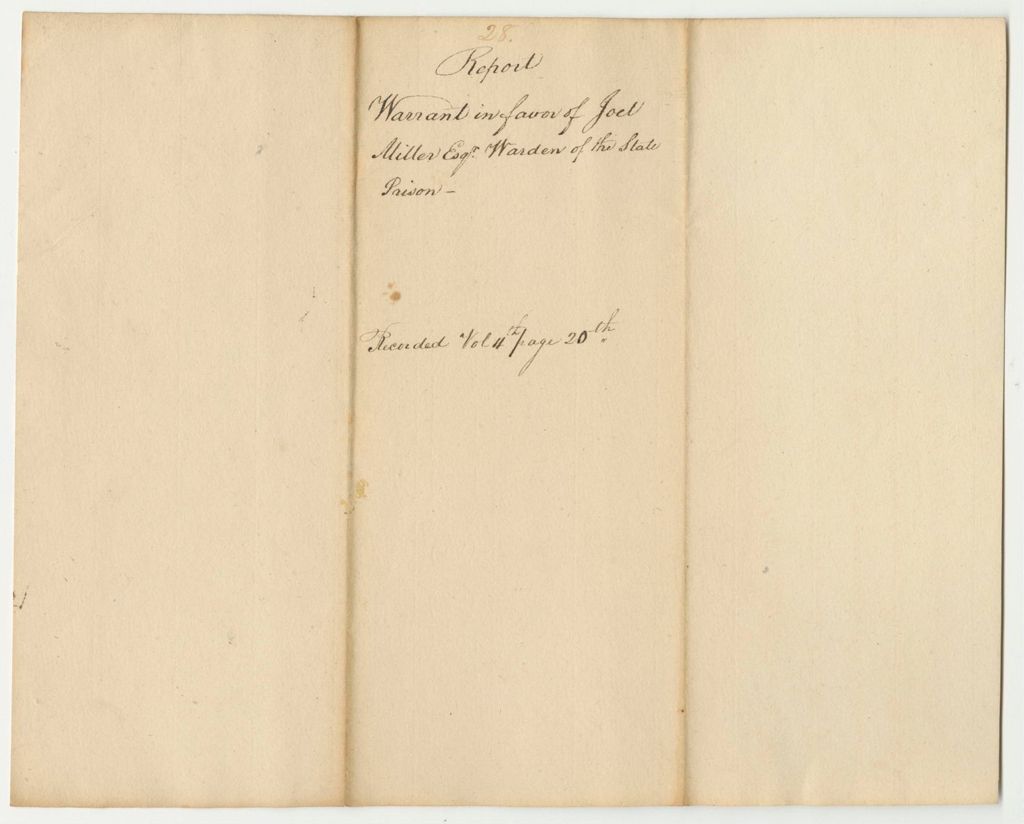 28.
Report
Warrant in favor of Joel
Miller Esqr. Warden of the State
Prison —
Recorded Vol 4th page 20th